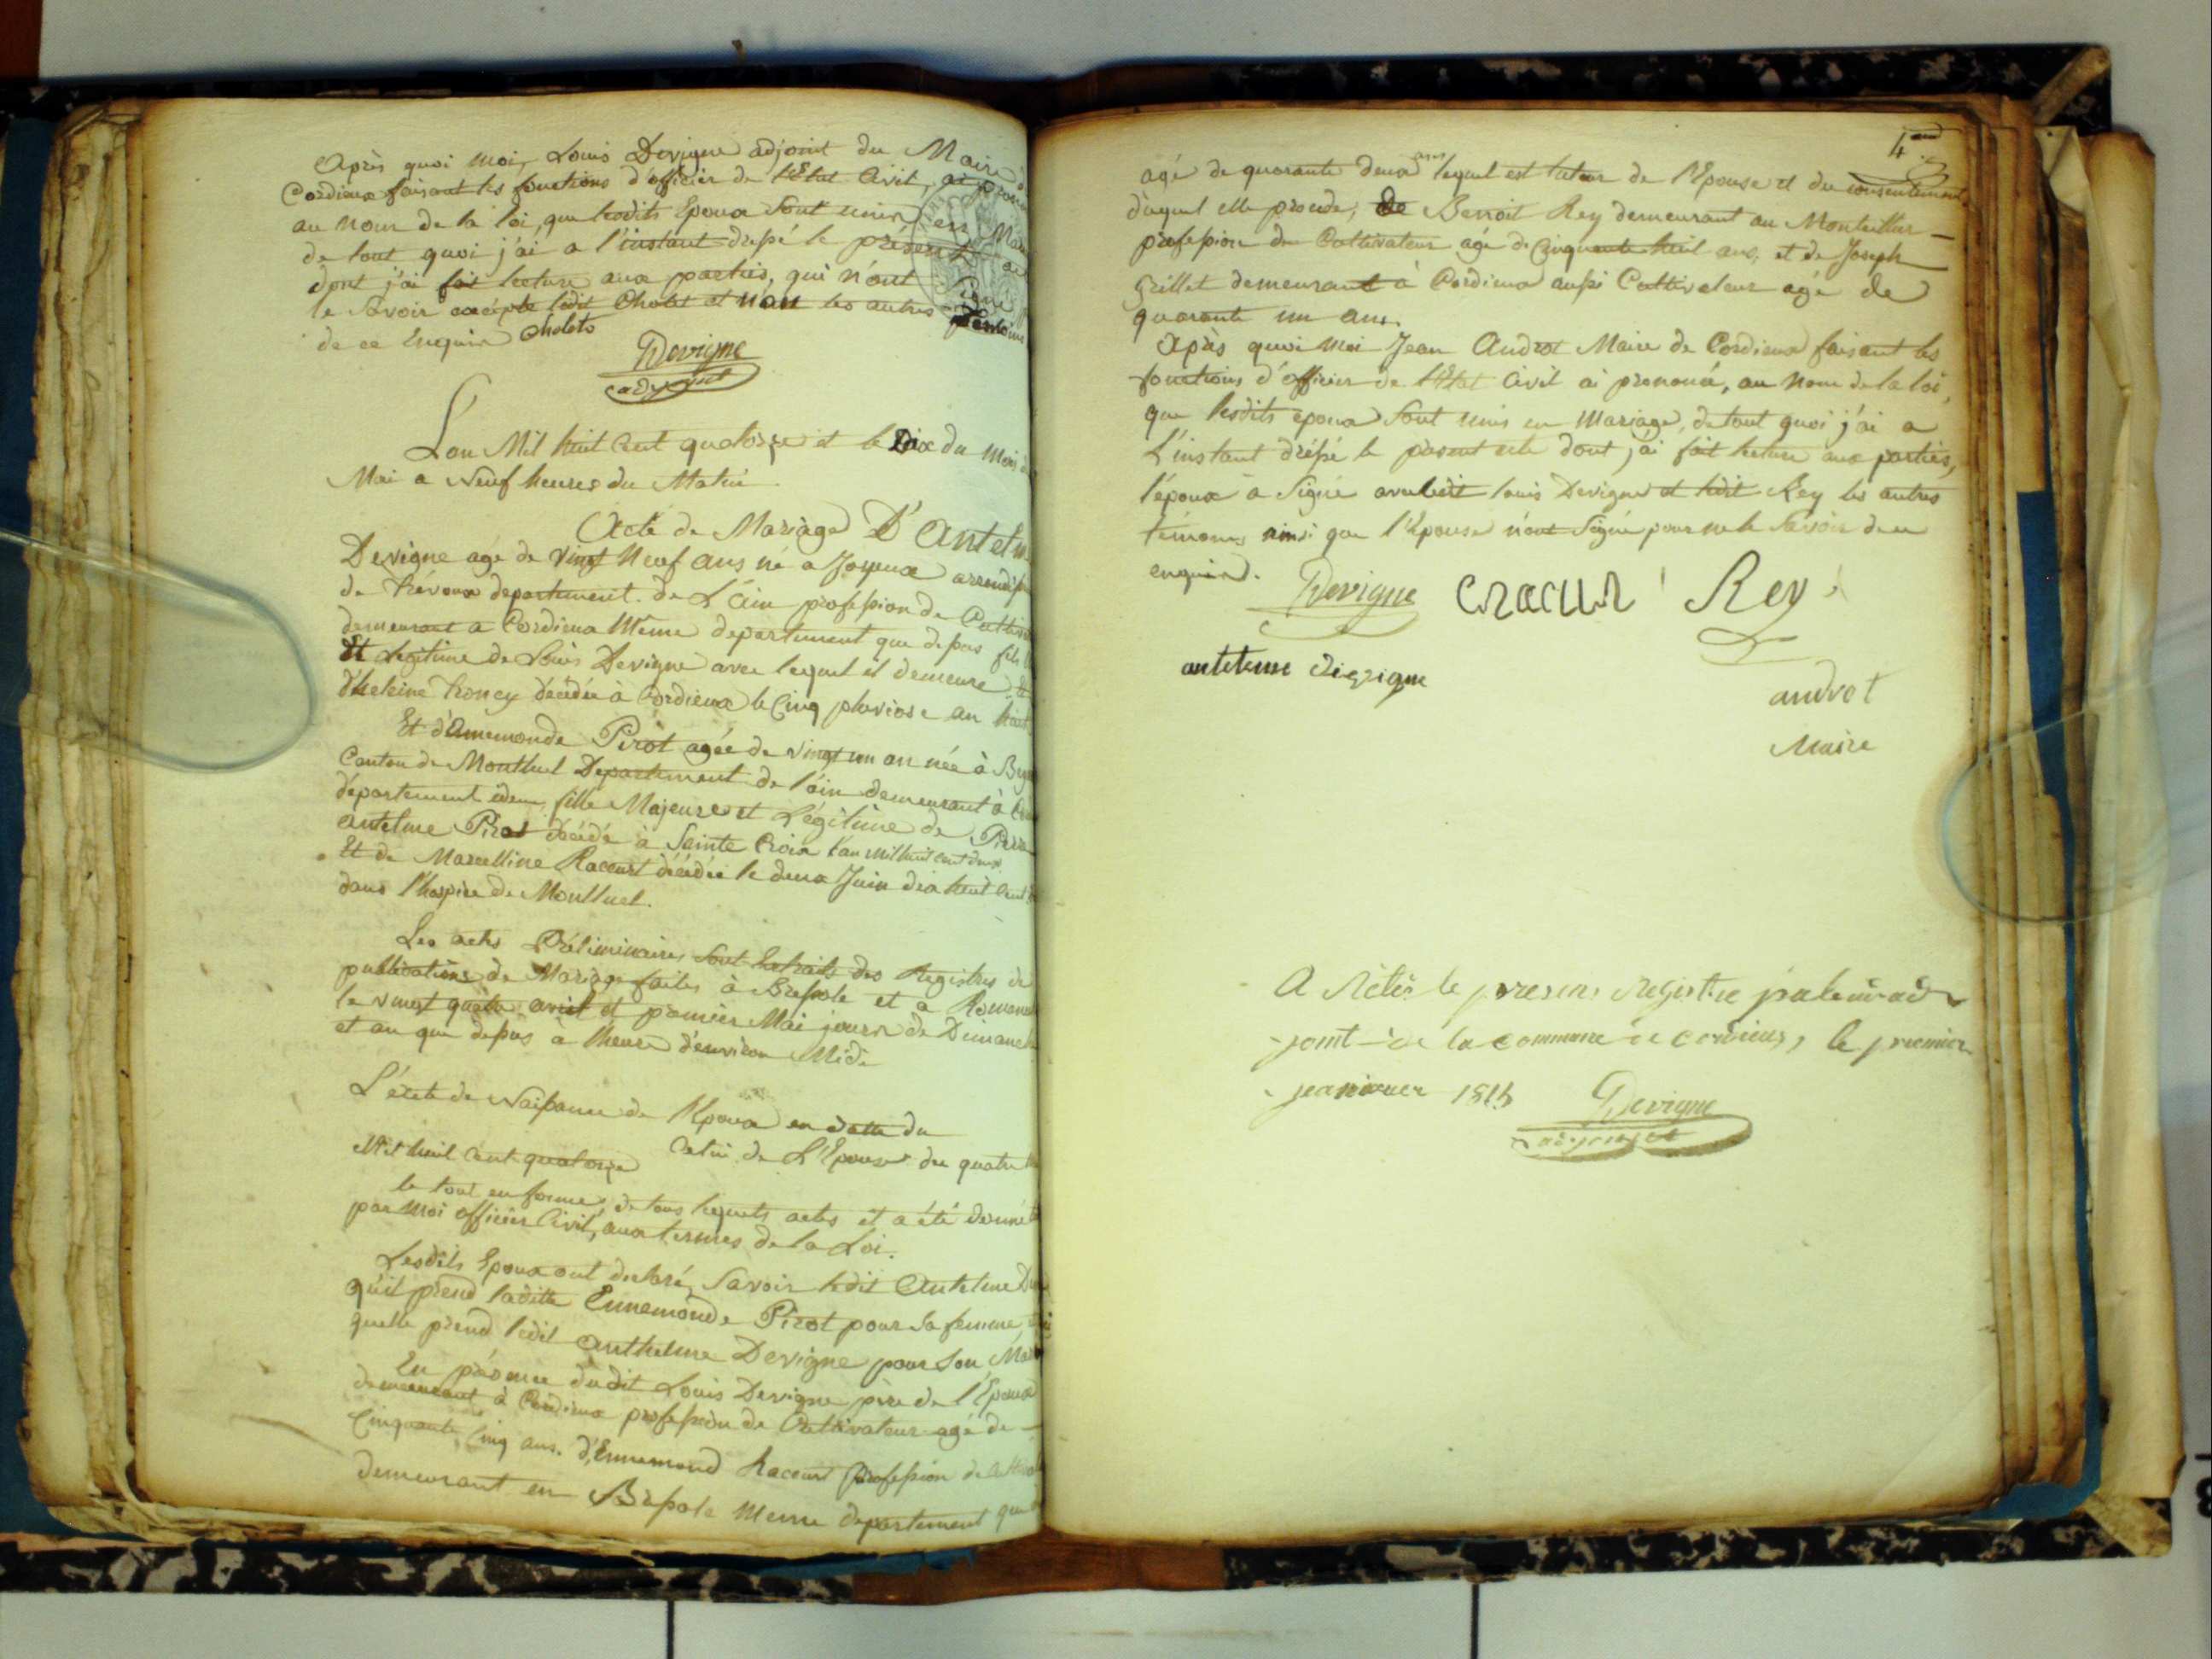 Après quoi moi, Louis Devigne adjoint du Maire
Cordieux faisant les fonctions d'officier de l'Etat Civil, ai
au nom de la loi, que lesdits Epoux sont unis en
de tout quoi j'ai a l'instant dressé le présent
dont j'ai fait lecture aux parties, qui n'ont signé
le savoir excépte ledit Cholet et non les autres
de ce Enquis Cholets
Devigne
adjoint
L'an Mil huit Cent quatorze et le Dix du mois
Mai a Neuf heures du Matin
Acte de Mariage D'Antelm
Devigne agé de vingt Neuf ans né a Joyeux
de Trévoux departement de L'ain profession de
demeurant a Cordieux Même departement que dessus fils
Et Legitime de Louis Devigne avec lequel il demeure
d'heleine décédée à Cordieux le Cinq pluviose an huit
Et d'Ennemonde Pirot agée de vingt un an née à
Canton de Montluel Departement de l'ain demeurant à
département idem, fille Majeure et Légitime de
Antelme Pirot décédé à Sainte Croix l'an mil huit cent deux
Et de Marcelline Racourt décédée le deux Juin dix huit cent
dans l'hospice de Montluel.
Les actes Préliminaires sont Extraits des Registres de
publications de Mariage faites à Bressole et a
le vingt quatre avril et premier Mai jours de
et an que dessus à l'heure d'environ Midi
L'acte de Naissance de l'Epoux en datte du
Mil huit Cent quatorze Celui de L'Epouse du quatre
le tout en forme, de tous lesquels actes et a été donné
par moi officier Civil, aux termes de la Loi.
Lesdits Epoux ont declaré, savoir ledit Antelme
qu'il prend laditte Ennemonde Pirot pour sa femme,
quelle prend ledit Anthelme Devigne pour Son
En présence dudit Louis Devigne père de l'Epoux
demeurant à Cordieux profession de Cultivateur agé de
Cinquante Cinq ans. d'Ennemond Racourt profession de
demeurant en Bressole Meme departement que
4
agé de quarante deux ans lequel est tuteur de l'Epouse et du consentement
duquel elle procede, de Benoit Rey demeurant au Montellier
profession de Cultivateur agé de Cinquante huit ans, et de Joseph
Grillet demeurant à Cordieux aussi Cultivateur agé de
quarante un ans.
Après quoi moi Jean Androt Maire de Cordieux faisant les
fonctions d'officier de l'Etat Civil ai prononcé, au nom de la loi,
que lesdits époux sont unis en Mariage, de tout quoi j'ai a
L'instant dréssé le présent acte dont j'ai fait lecture aux parties,
l'époux a Signé avec ledit louis Devigne et ledit Rey les autres
témoins ainsi que l'Epouse n'ont Signé pour ne le Savoir de ce
enquis.
Devigne Rey
antelme
androt
Maire
A Rétés le presens Registre
joint de la commune de cordieux, le premier
Devigne
adjoint